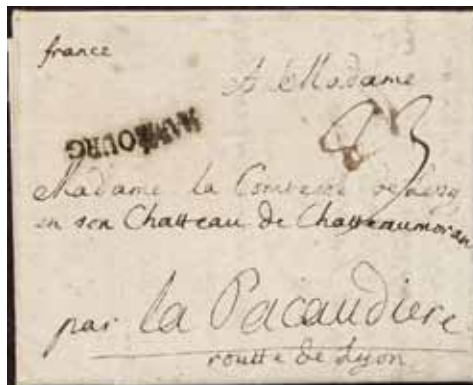 france
A Madame
HAMBOURG
23
Madame la Comtesse de
en son Chatteau de Chatteaumoran
par la Pacaudiere
routte de Lyon